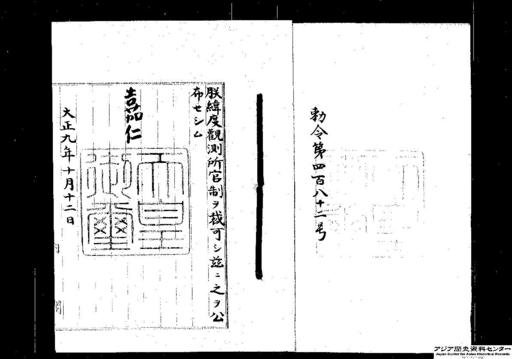 勅令第四百八十二号
朕緯度観測所官制ヲ裁可シ茲ニ之ヲ公
布セシム
嘉仁
天皇
御璽
大正九年十月十二日
内閣
アジア歴史資料センター
Japan Center for Asian Historical Records